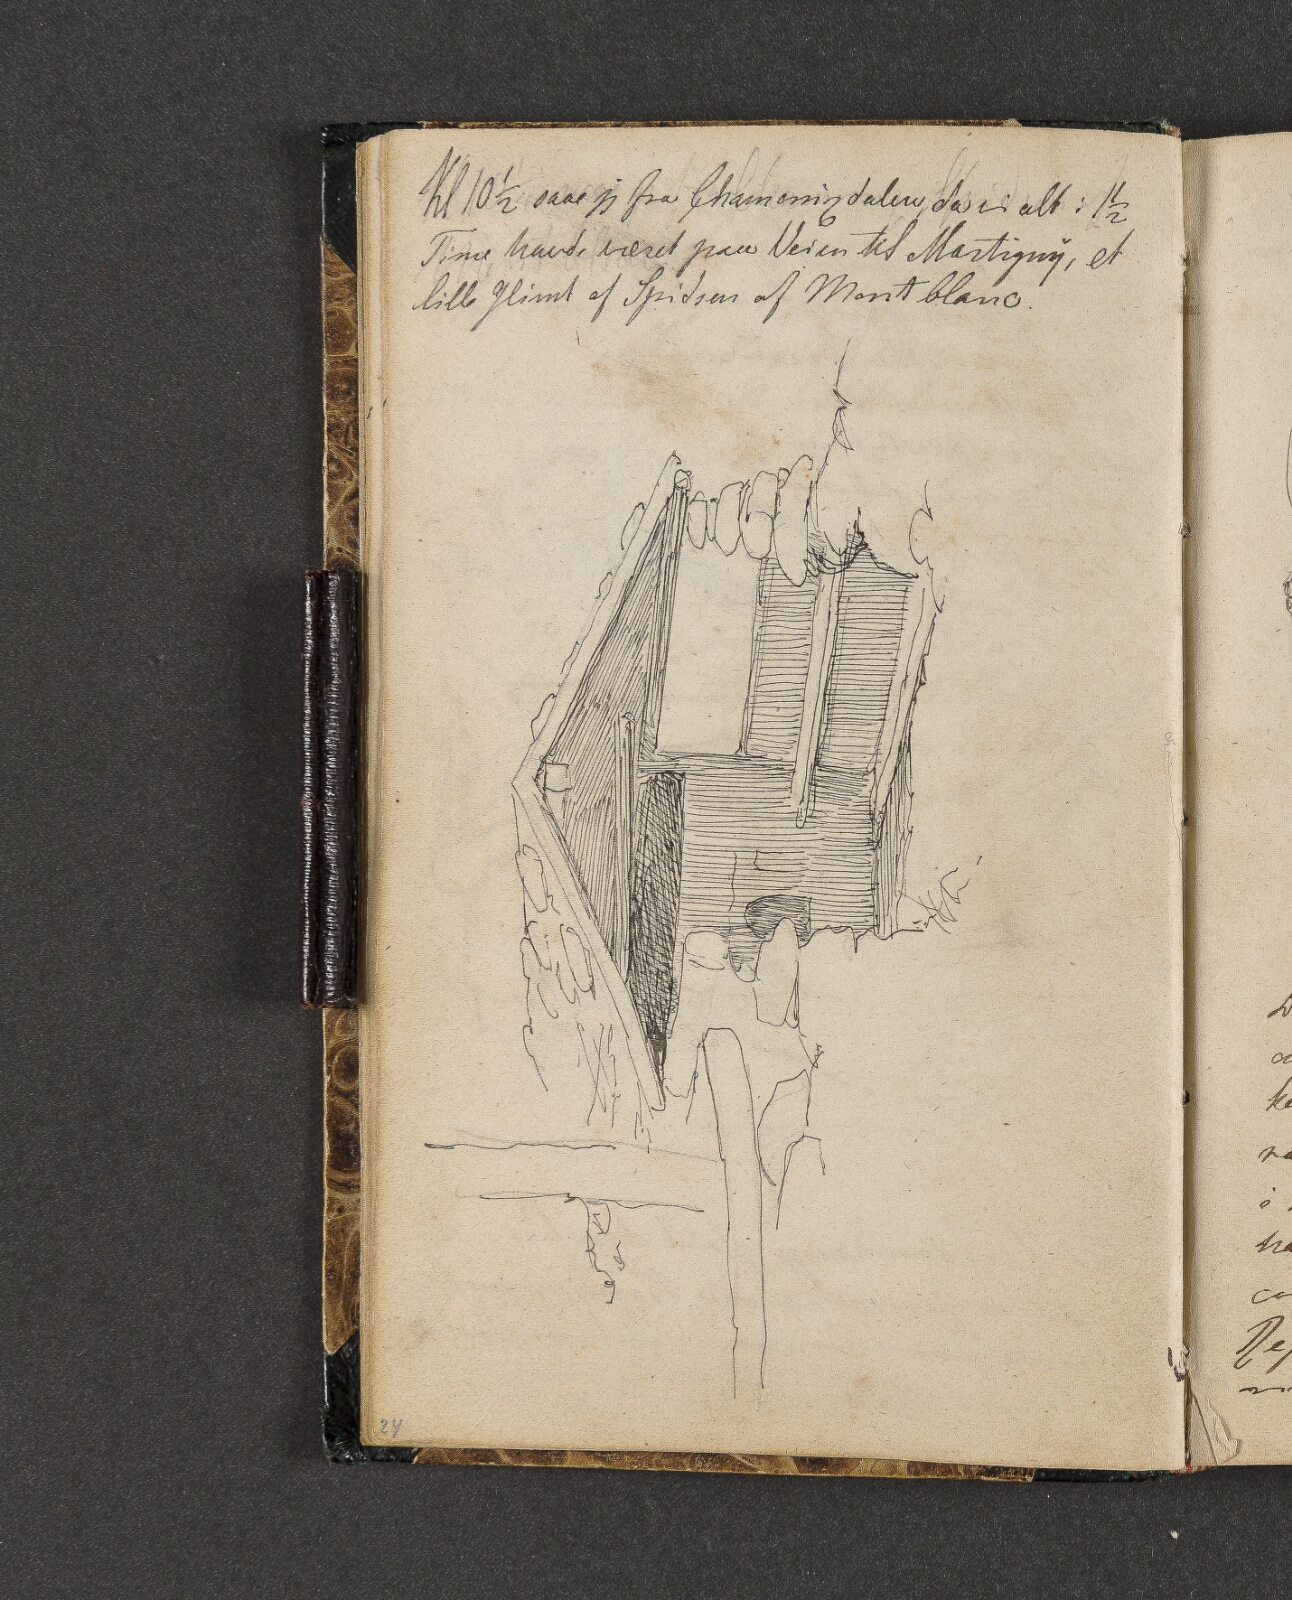 Kl 10½ saae jeg fra Chamounixdalen, da vi alt i 1½
Time havde været paa Veien til Martigny, et
lille Glimt af Spidsen af Mont blanc.
24